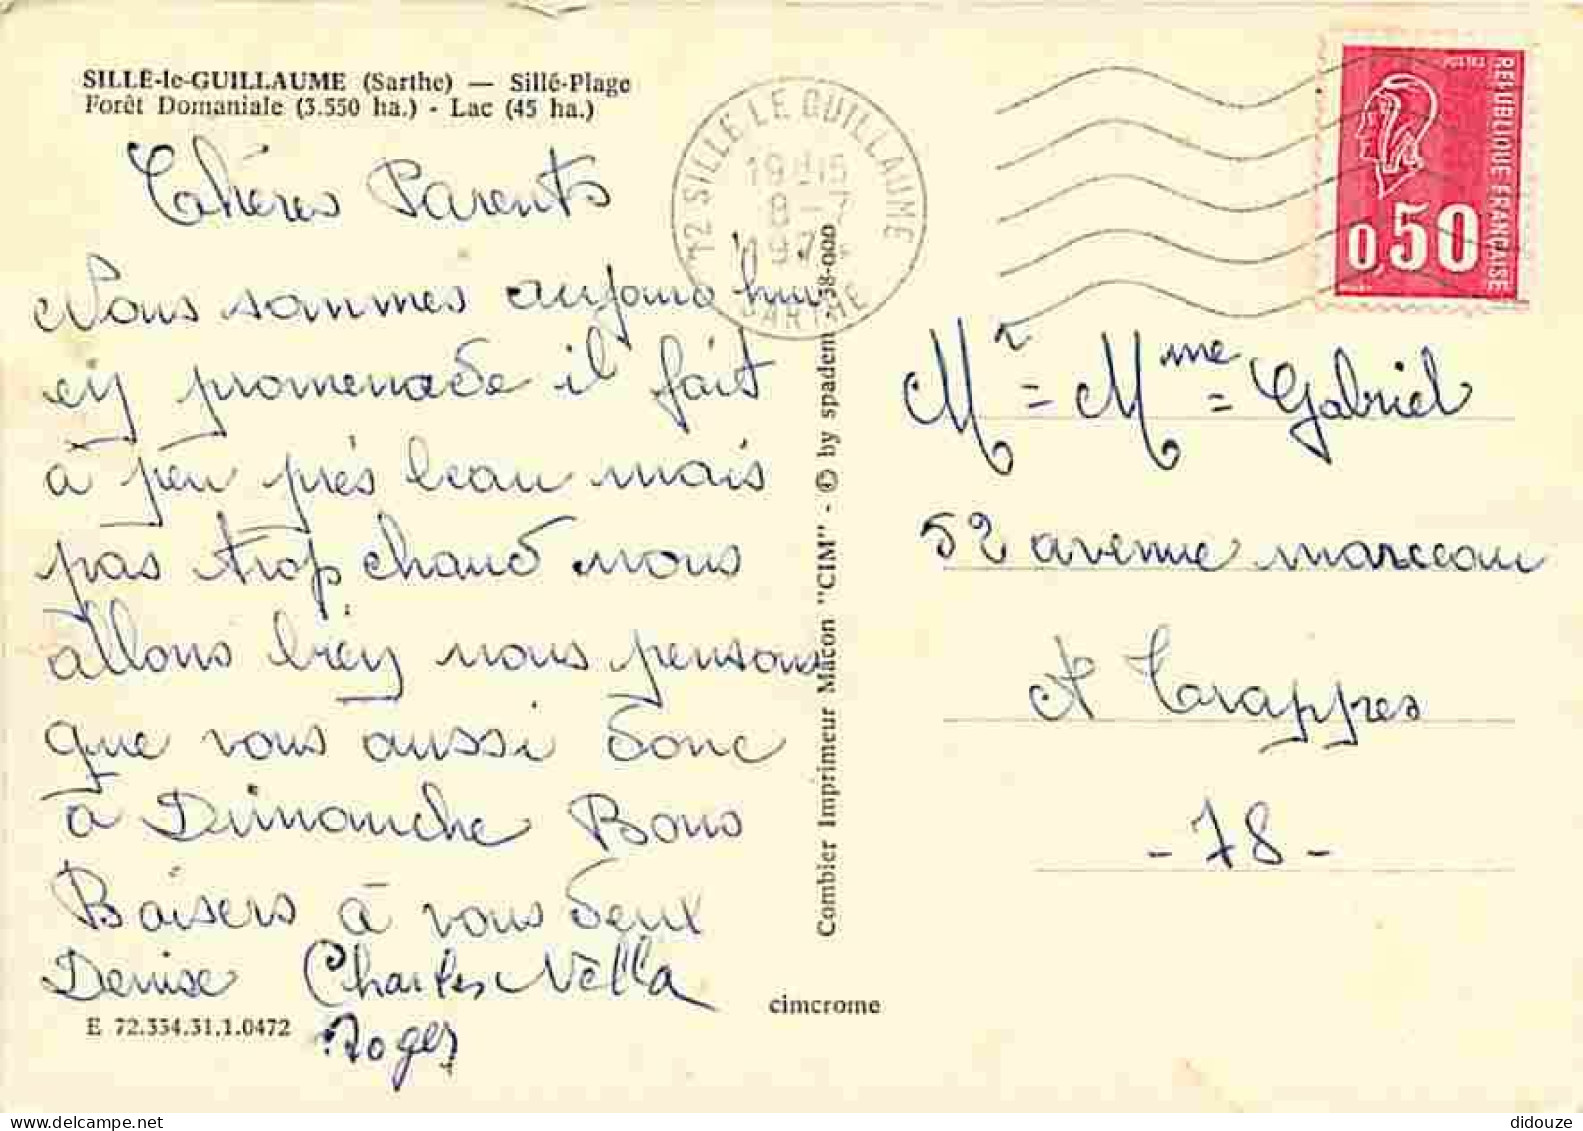 SILLÉ-le-GUILLAUME (Sarthe) — Sillé-Plage
Forêt Domaniale (3.550 ha.) - Lac (45 ha.)
Chères Parents
Nous sommes aujourd'hui
en promenade il fait
à peu près beau mais
pas trop chaud nous
allons bien nous pensons
que vous aussi donc
a Dimanche Bons
Baisers à vous deux
Denise Charles Nella
Roger
E 72.334.31.1.0472
72 SILLE LE GUILLAUME
19H15
8-7
197
SARTHE
Combier Imprimeur Macon "CIM" - © by spadem 58-000
cimcrome
POSTES
REPUBLIQUE FRANÇAISE
0,50
Mr = Mme = Gabriel
52 avenue marceau
A Trappes
- 78 -
didouze